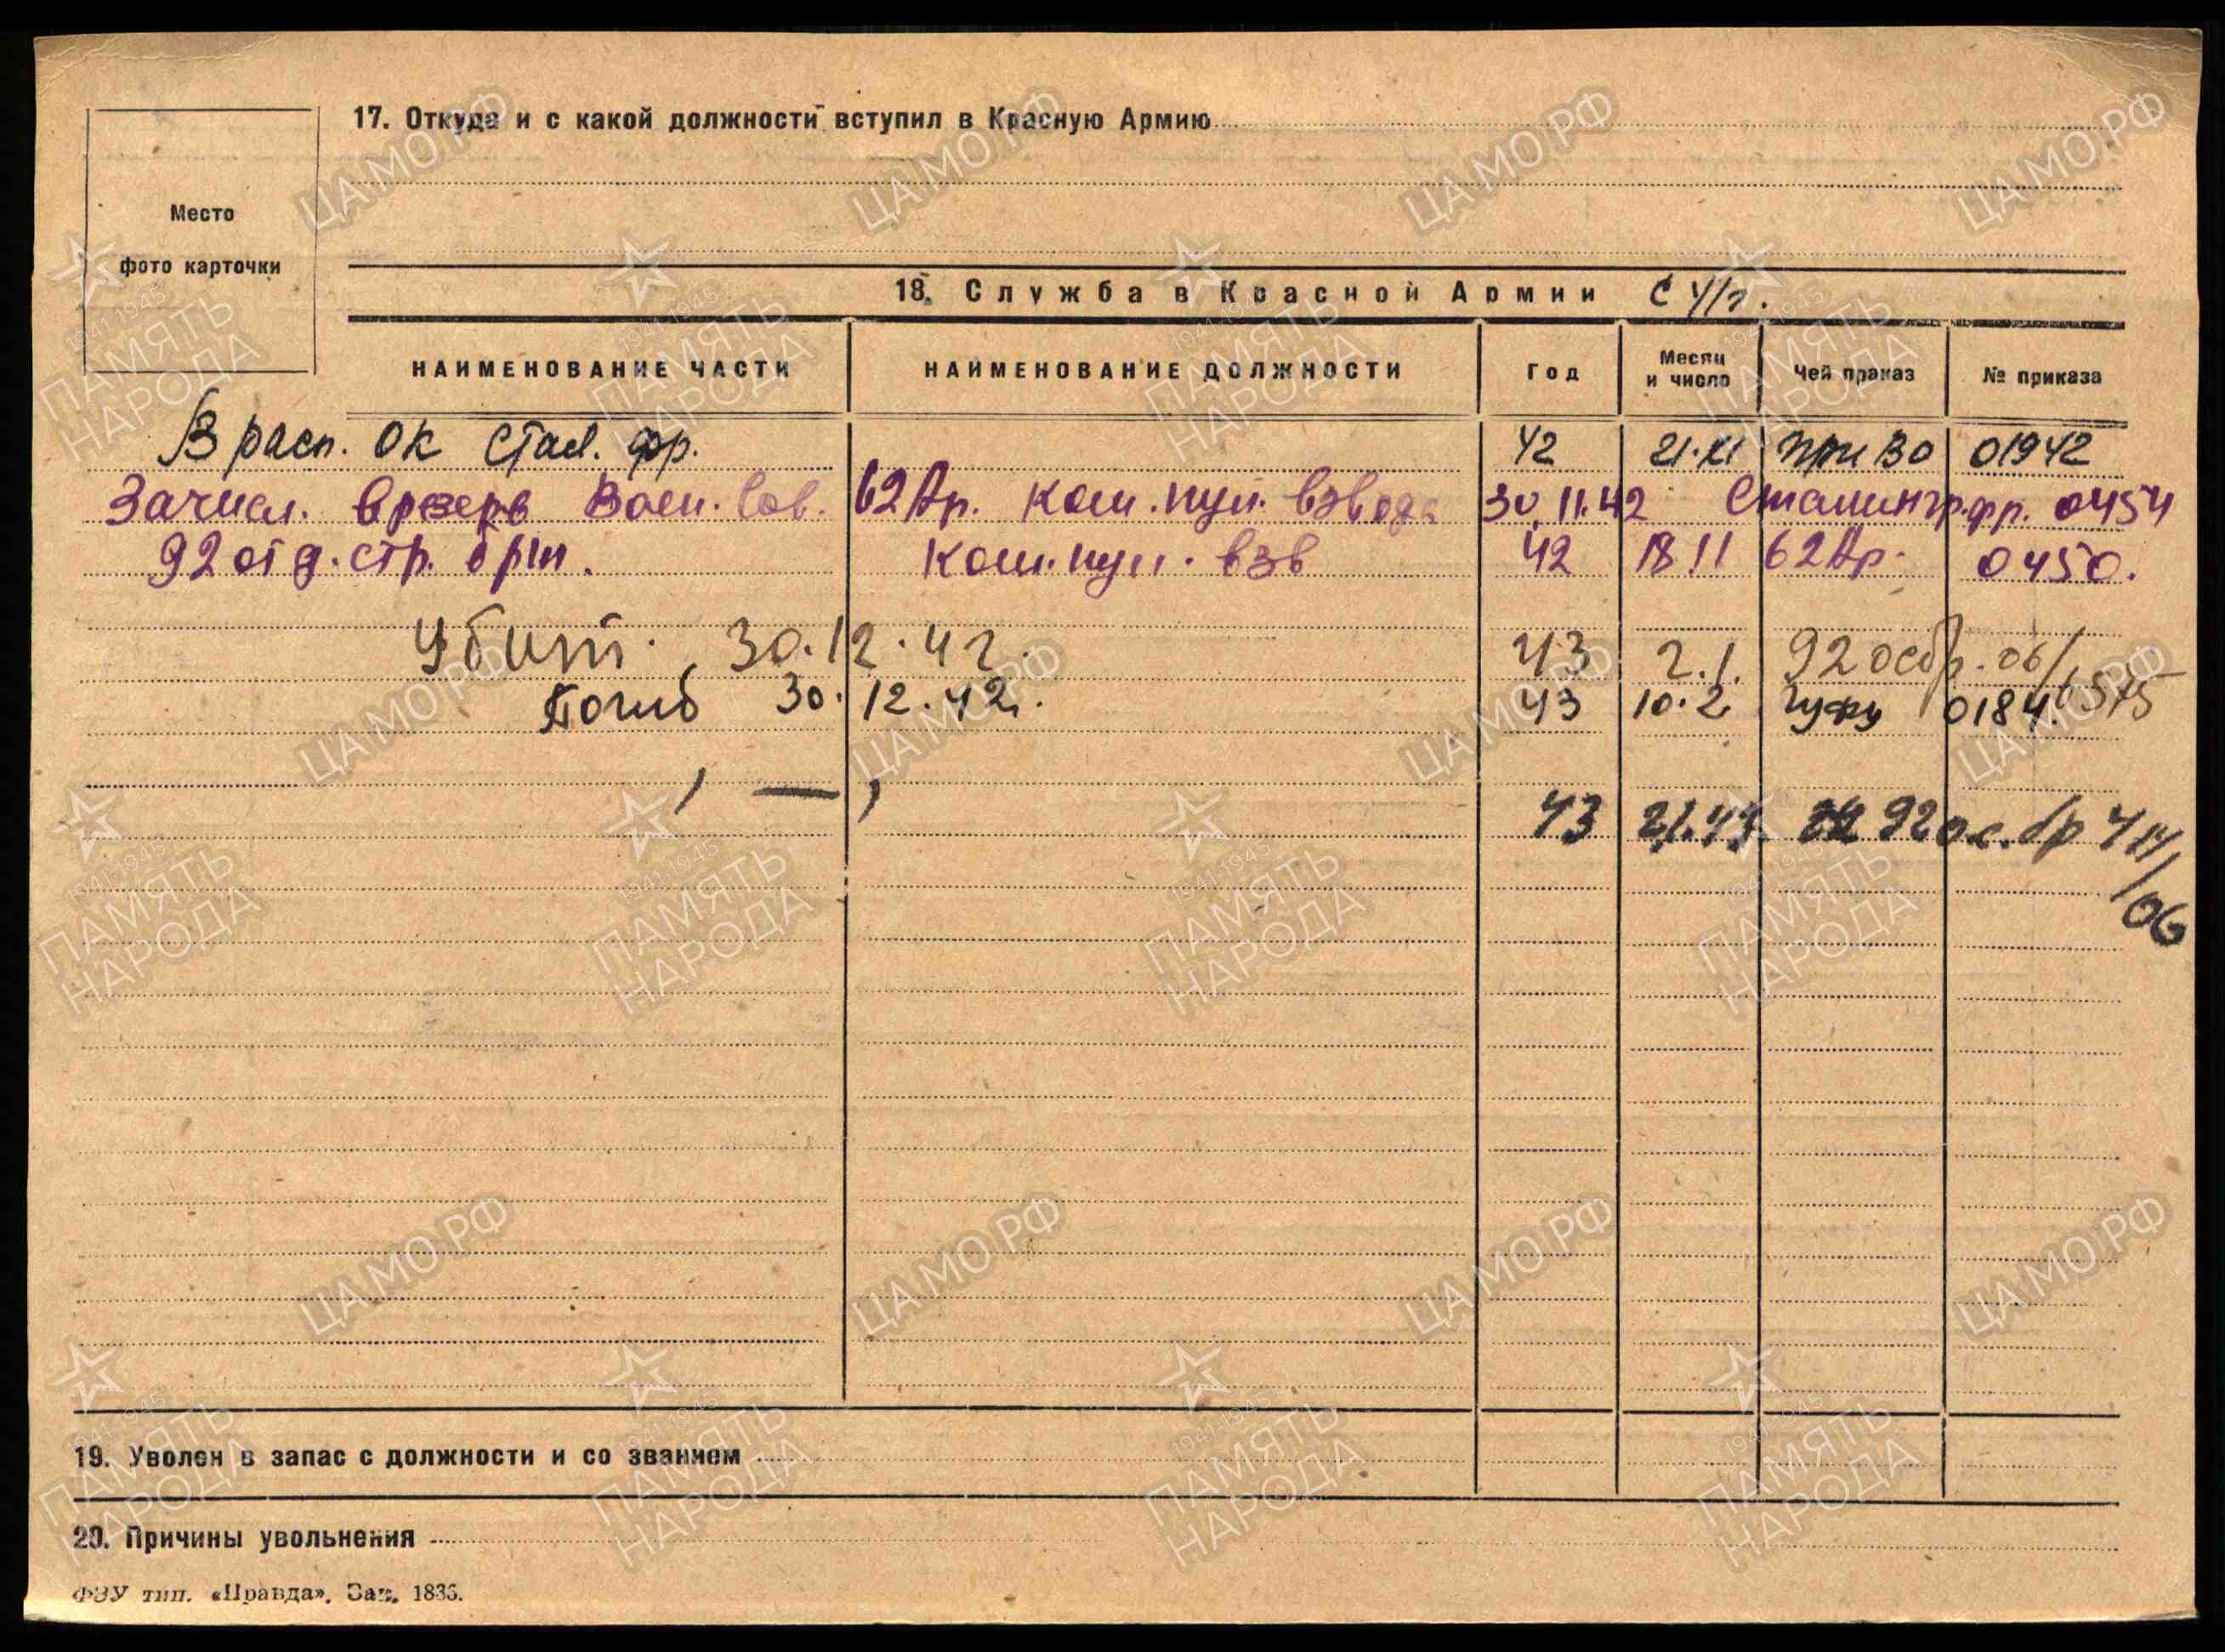 17. Откуда и с какой должности вступил в Красную Армию
Место
фото карточки
18. Служба в Красной Армии с 41 г.
НАИМЕНОВАНИЕ ЧАСТИ НАИМЕНОВАНИЕ ДОЛЖНОСТИ Год Месяц и число Чей приказ № приказа
В расп. ОК Стал. фр. 42 21.XI ПриВО 01942
Зачисл. в резерв Воен. Сов. 62 Ар. Ком. пул. взвода 30.11.42 Сталингр. фр. 0454
92 отд. стр. бриг. Ком. пул. взв 42 18 11 62 Ар. 0450.
Убит. 30.12.42. 43 2.1. 92 осбр. 06/0575
Погиб 30.12.42. 43 10.2 ГУФУ 0184.
, — , 43 2.1.43 92 о.с. бр 414/06
19. Уволен в запас с должности и со званием
20. Причины увольнения
ФЗУ тип. «Правда». Зак. 1836.
ЦАМО.РФ
1941-1945
ПАМЯТЬ
НАРОДА